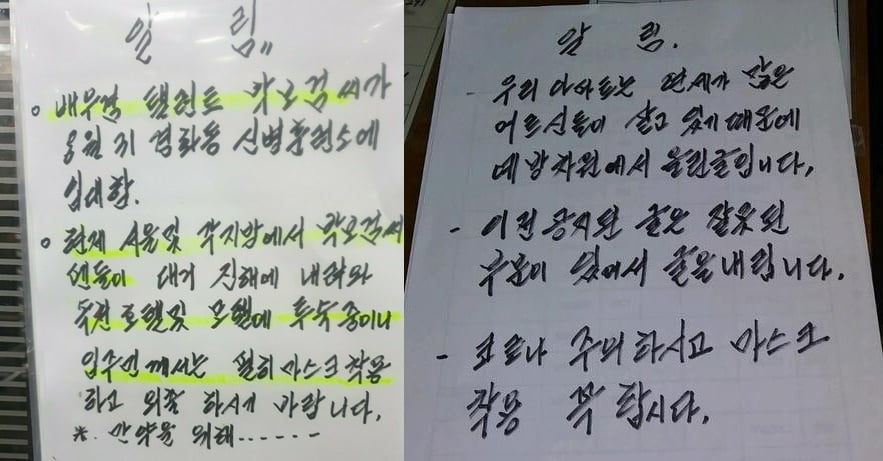 알 림"
o 배우겸 탤런트 박보검 씨가
8월 31 경화동 신병훈련소에
입대함.
o 현재 서울및 각지방에서 박보검씨
팬들이 대거 진해에 내려와
독천호텔및 모텔에 투숙중이니
입주민께서는 필히 마스크 착용
하고 외출 하시게 바랍니다.
※. 만약을 위해------
알 림.
우리 아파트는 연세가 많은
어르신들이 살고 있기 때문에
예방차원에서 올린글입니다.
- 이전공지된 글은 잘못된
부분이 있어서 글을내립니다.
- 코로나 주의하시고 마스크
착용 꼭 합시다.